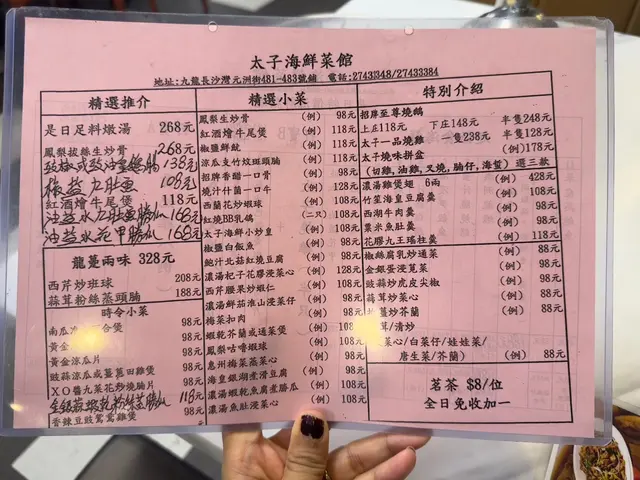 太子海鮮菜館
地址:九龍長沙灣元洲街481-483號舖 電話:27431348/27433384
精選推介
是日足料燉湯 268元
鳳梨銀絲生炒骨 268元
138元
108元
紅酒燴牛尾煲 118元
168元
油鹽水花甲 168元
龍躉兩味 328元
西芹炒班球 208元
蒜茸粉絲蒸頭腩 188元
時令小菜
南瓜 合煲 98元
黃金 98元
黃金涼瓜片 98元
豉蒜涼瓜或薑葱田雞煲 98元
XO醬九菜花炒燒腩片 98元
118元
香辣豆豉鴛鴦雞煲 98元
精選小菜
鳳梨生炒骨 (例) 98元
紅酒燴牛尾煲 (例) 118元
椒鹽鮮魷 (例) 118元
涼瓜支竹炆斑頭腩 (例) 118元
招牌香醋一口骨 (例) 98元
燒汁牛菌一口牛 (例) 118元
西蘭花炒蝦球 (例) 118元
紅燒BB乳鴿 (二只) 108元
太子海鮮小炒皇 (例) 108元
椒鹽白飯魚 (例) 98元
鮑汁北菇紅燒豆腐 (例) 98元
濃湯杞子花膠浸菜心 (例) 128元
西芹腰果炒蝦仁 (例) 98元
濃湯鮮茄淮山浸菜仔 (例) 98元
梅菜扣肉 (例) 98元
蝦乾芥蘭或通菜煲 (例) 108元
鳳梨咕嚕蝦球 (例) 108元
惠州梅菜蒸菜心 (例) 98元
海皇銀湖煮滑豆腐 (例) 98元
濃湯蝦乾魚腐煮勝瓜 (例) 108元
濃湯魚肚浸菜心 (例) 108元
特別介紹
招牌至尊燒鵝
上庄118元 下庄148元 半隻248元
太子一品燒雞 隻238元 半隻128元
太子燒味拼盒 (例)178元
(切雞,油雞,叉燒,腩仔,海蜇) 選三款
濃湯雞煲翅 6両 (例) 428元
竹笙海皇豆腐羹 (例) 108元
西湖牛肉羹 (例) 98元
粟米魚肚羹 (例) 98元
花膠九王瑤柱羹 (例) 108元
椒絲腐乳炒通菜 (例) 88元
金銀蛋浸莧菜 (例) 98元
豉蒜炒虎皮尖椒 (例) 98元
蒜茸炒菜心 (例) 88元
芥蘭 (例) 88元
茸/清炒
菜心/白菜仔/娃娃菜/
唐生菜/芥蘭) (例) 88元
茗茶 $8/位
全日免收加一